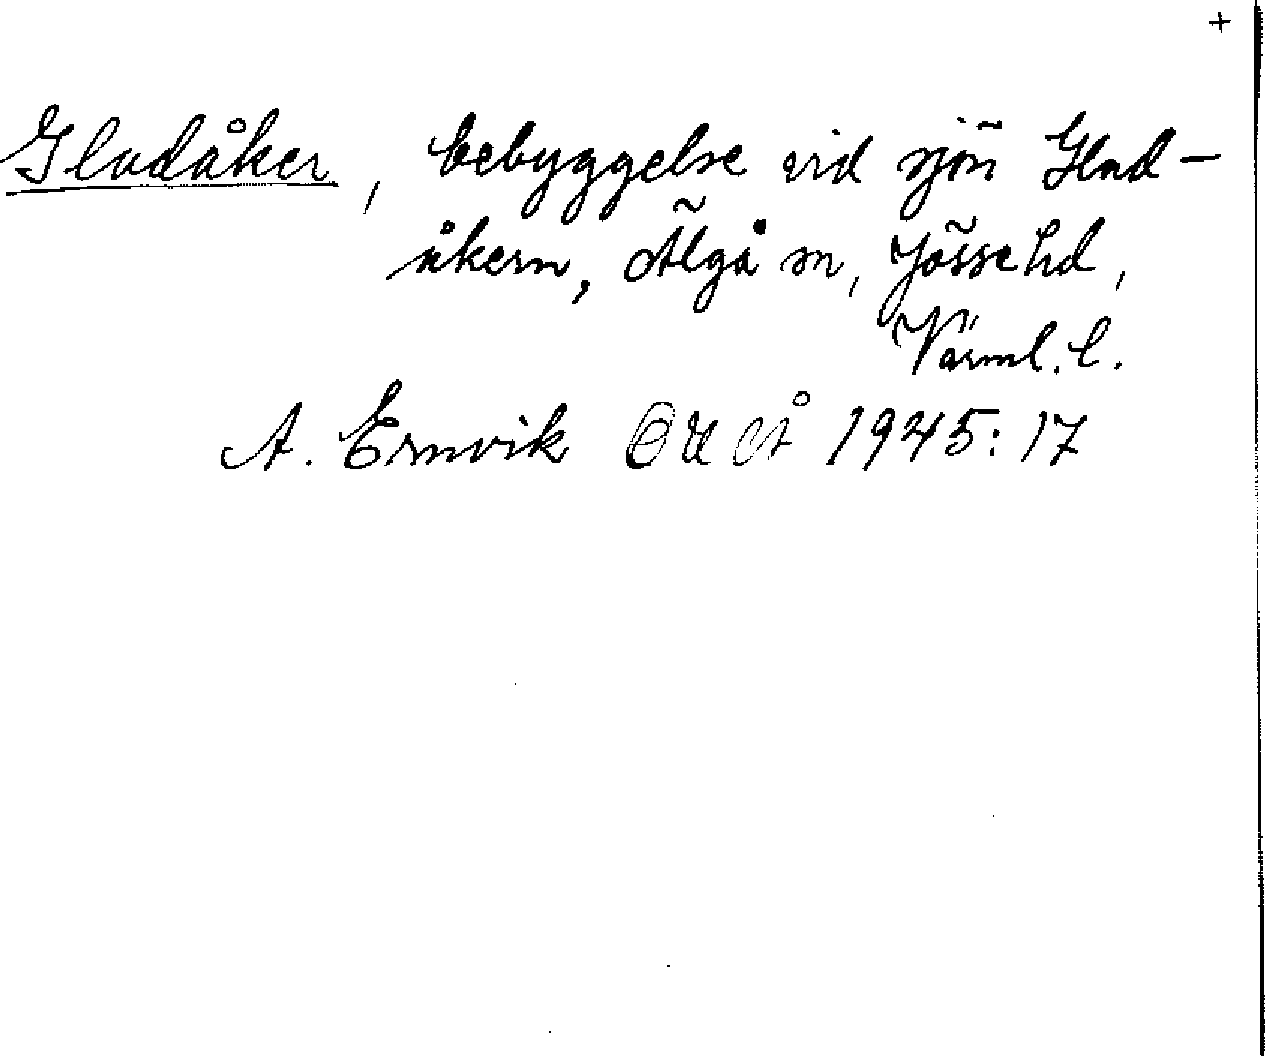 +
Gladåker, bebyggelse vid sjön Glad-
åkern, Älgå sn, Jösse hd,
Värml. l.
A. Ernvik OUÅ 1945:17